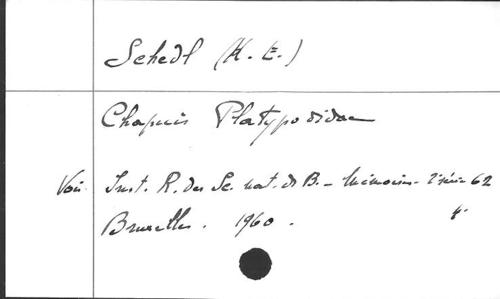 Schedl (K. E.)
Chapuis Platypodidae
Voir Inst. R. des Sc. nat. de B. - Mémoires - 2e série 62
Bruxelles. 1960.